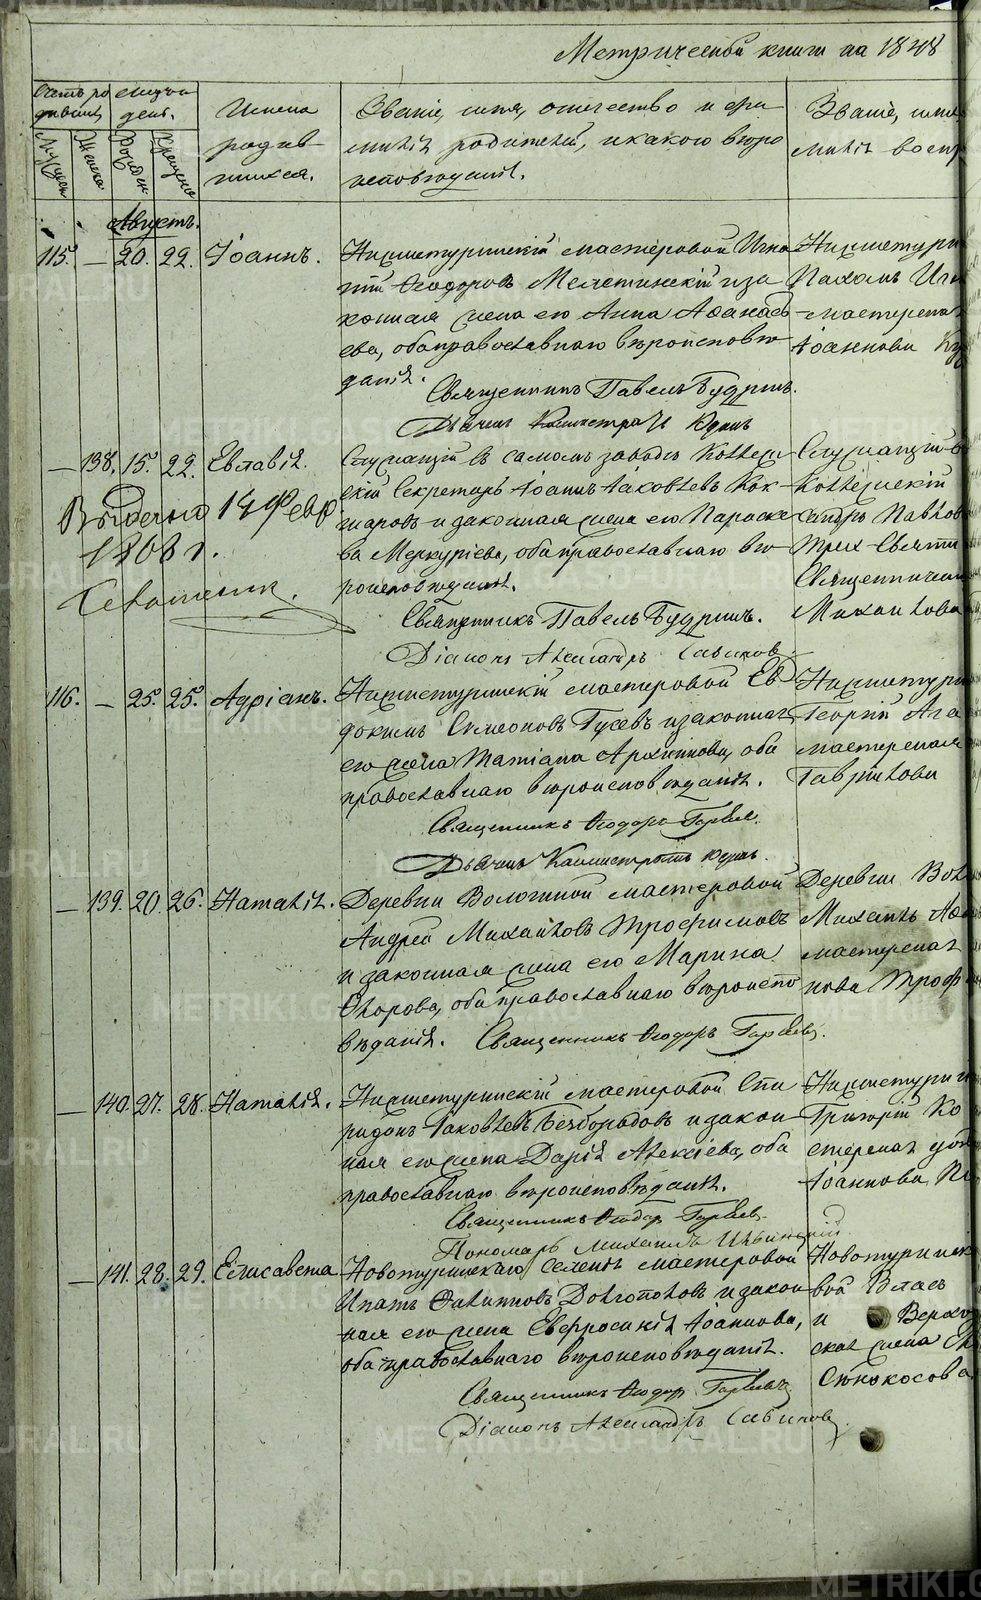 Метрической книги на 1848
Счетъ ро
дившихся
Мужеска
Женска
Месяцъ и
день.
Рожден
Крещения
Имена
родив-
шихся.
Званіе, имя, отчество и фа
милія родителей, и какого вѣро
исповѣданія.
Званіе, имя
милія воспр
Августъ.
115. — 20. 22. Іоаннъ.
Нижнетуринскій мастеровой Игна
тій Ѳеодоровъ Мелетинскій и за
конная жена его Анна Аѳанась
ева, оба православнаго вѣроисповѣ
данія.
Священникъ Павелъ Будринъ.
Дьячекъ Калистратъ
Нижнетури
Пахомъ Игн
мастерска
Іоаннова
— 138. 15. 22. Евлавія.
Служащій въ самомъ заводѣ Коллеж
скій Секретарь Іоаннъ Іаковлевъ Кок-
шаровъ и законная жена его Параске
ва Меркуріева, оба православнаго вѣ-
роисповѣданія.
Священникъ Павелъ Будринъ.
Діаконъ Александръ Савинов
Служащій в
Коллежскій
Павлов
Трех-Святи
Священничи
Михаилова
Выдано 14 Февр
1908 г.
116. — 25. 25. Адріанъ.
Нижнетуринскій мастеровой Ев
докимъ Симеоновъ Гусевъ и законная
его жена Татіана Архиппова, оба
православнаго вѣроисповѣданія.
Священникъ Ѳеодоръ
Дьячекъ Калистратъ
Нижнетури
Георгій Ага
мастерская
Гаврилова
— 139. 20. 26. Наталія.
Деревни Вологиной мастеровой
Андрей Михайловъ Трофимовъ
и законная жена его Марина
Егорова, оба православнаго вѣроиспо
вѣданія. Священникъ Ѳеодоръ
Деревни Вол
Михаилъ
мастерская
нова Троф
— 140. 27. 28. Наталія.
Нижнетуринскій мастеровой Спи
ридонъ Іаковлевъ Безбородовъ и закон
ная его жена Дарія Алексіева, оба
православнаго вѣроисповѣданія.
Священникъ Ѳеодоръ
Пономарь Михаилъ
Нижнетури
Григорій Ко
стерская
Іоаннова
— 141. 28. 29. Елисавета
Новотуринскаго селенія мастеровой
Ипатъ Филипповъ Долгополовъ и закон
ная его жена Евфросинія Іоаннова,
оба православнаго вѣроисповѣданія.
Священникъ Ѳеодоръ
Діаконъ Александръ Савинов
Новотуринск
вой Власъ
и Верхо
ская жена
Сѣнокосова
METRIKI.GASO-URAL.RU